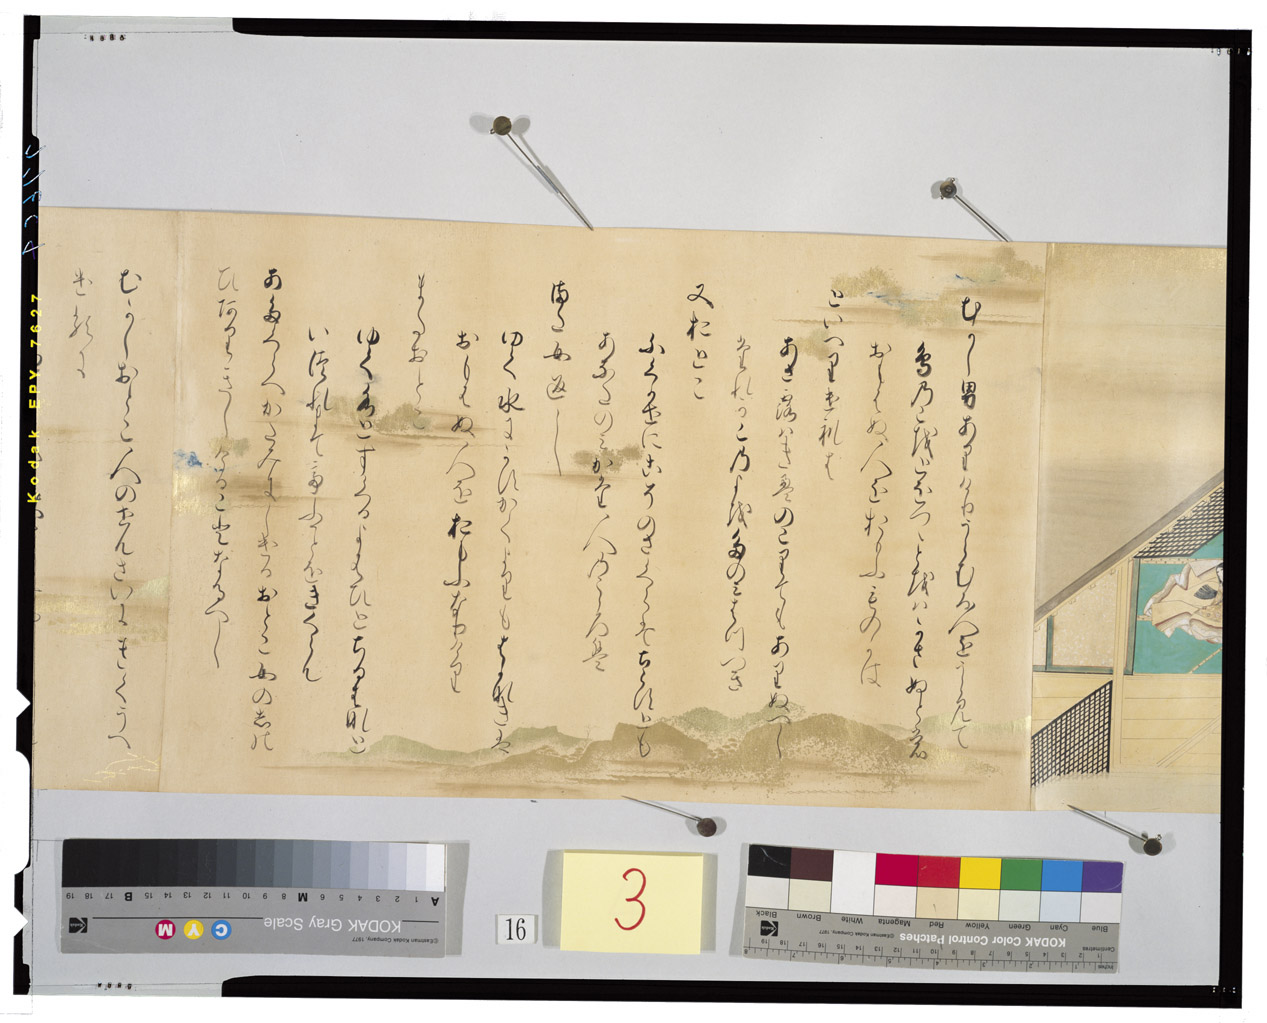 むかし男ありけりうらむる人をうらみて
鳥のこを十つゝ十はかさぬとも
おもはぬ人をおもふものかは
といへりけれは
あさ露はきえのこりてもありぬへし
たれかこの世をたのみはつへき
又おとこ
ふく風にこそのさくらはちらすとも
あなたのみかた人の心は
又女返し
ゆく水にかすかくよりもはかなきは
おもはぬ人をおもふなりけり
またおとこ
ゆく水とすくるよはひとちる花と
いつれまててふことをきくらん
あたくらへかたみにしけるおとこ女のしの
ひありきしけることなるへし
むかしおとこ人のせんさいにきくうへ
けるに
Kodak EPX 7627
KODAK Gray Scale
©Eastman Kodak Company, 1977
C Y M
A 1 2 3 4 5 6 M 8 9 10 11 12 13 14 15 B 17 18 19
16
3
KODAK Color Control Patches
©Eastman Kodak Company, 1977
Blue Cyan Green Yellow Red Magenta White Brown Black
Centimetres
Inches